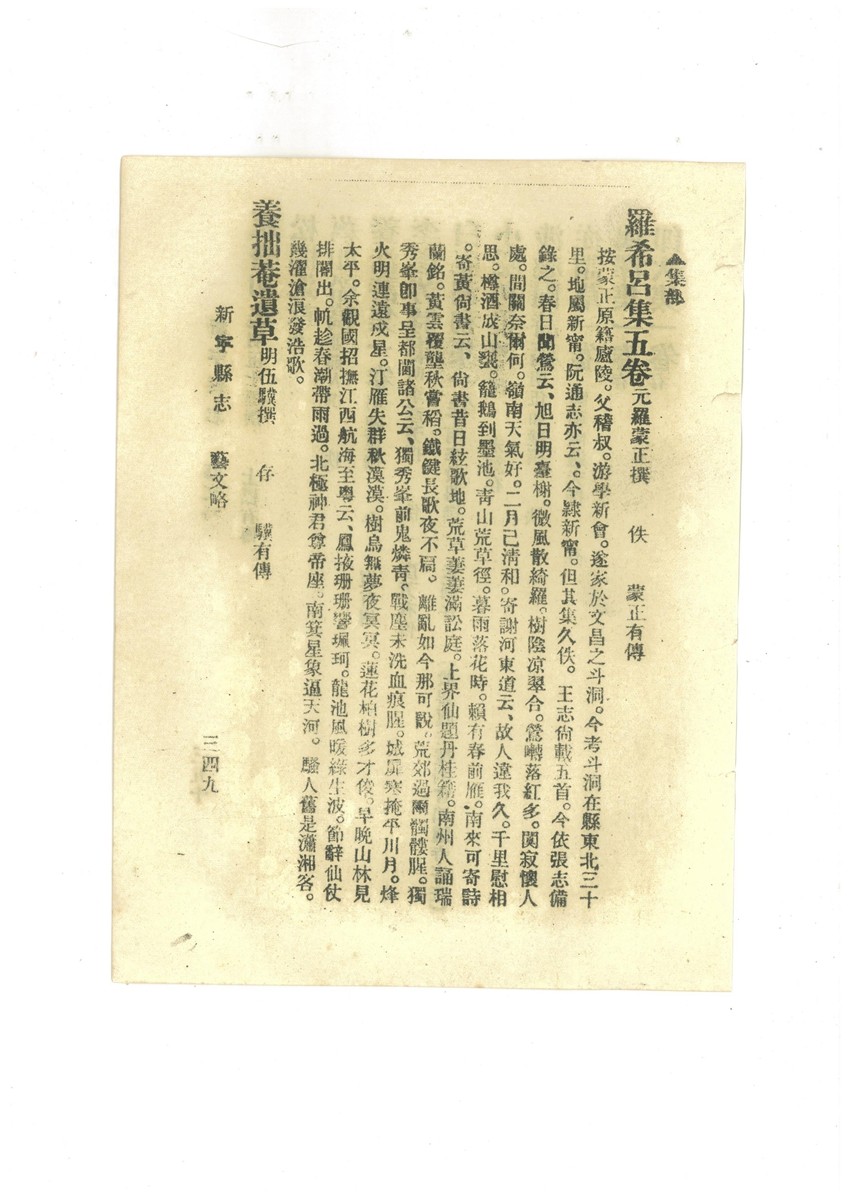 ▲集部
羅希呂集五卷 元羅蒙正撰 佚 蒙正有傳
按蒙正原籍廬陵。父稽叔。游學新會。遂家於文昌之斗洞。今考斗洞在縣東北三十
里。地屬新甯。阮通志亦云、。今隸新甯。但其集久佚。王志尙載五首。今依張志備
錄之。春日聞鶯云、旭日明臺榭。微風散綺羅。樹陰凉翠合。鶯囀落紅多。閴寂懷人
處。間關奈爾何。嶺南天氣好。二月已淸和。寄謝河東道云、故人違我久。千里慰相
思。樽酒成山斝。籠鵝到墨池。靑山荒草徑。暮雨落花時。賴有春前雁。南來可寄詩
。寄黃尙書云、尙書昔日絃歌地。荒草萋萋滿訟庭。上界仙題丹桂籍。南州人誦瑞
蘭銘。黃雲覆壟秋嘗稻。鐵鍵長歌夜不扃。離亂如今那可說。荒郊過爾髑髏腥。獨
秀峯卽事呈都閫諸公云、獨秀峯前鬼燐靑。戰塵未洗血痕腥。城扉寒掩平川月。烽
火明連遠戍星。汀雁失群秋漠漠。樹烏無夢夜冥冥。蓮花柏樹多才俊。早晚山林見
太平。余觀國招撫江西航海至粵云、鳳掖珊珊響珮珂。龍池風暖綠生波。節辭仙仗
排閶出。帆趁春潮帶雨過。北極神君尊帝座。南箕星象逼天河。騷人舊是瀟湘客。
幾濯滄浪發浩歌。
養拙菴遺草 明伍驥撰 存 驥有傳
新寧縣志 藝文略 三四九